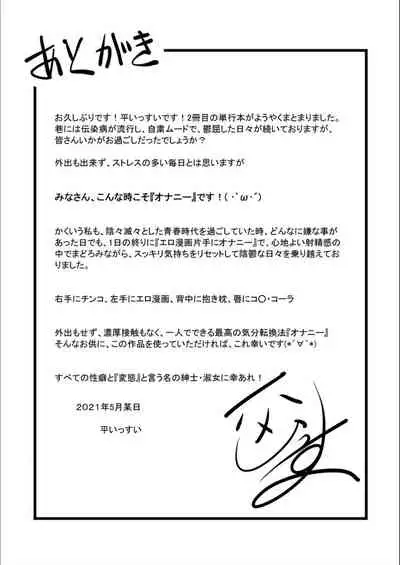 あとがき
お久しぶりです！平いっすいです！2冊目の単行本がようやくまとまりました。
巷には伝染病が流行し、自粛ムードで、鬱屈した日々が続いておりますが、
皆さんいかがお過ごしだったでしょうか？
外出も出来ず、ストレスの多い毎日とは思いますが
みなさん、こんな時こそ『オナニー』です！(｀・ω・´)
かくいう私も、陰々滅々とした青春時代を過ごしていた時、どんなに嫌な事が
あった日でも、1日の終りに『エロ漫画片手にオナニー』で、心地よい射精感の
中でまどろみながら、スッキリ気持ちをリセットして陰鬱な日々を乗り越えてお
りました。
右手にチンコ、左手にエロ漫画、背中に抱き枕、唇にコ〇・コーラ
外出もせず、濃厚接触もなく、一人でできる最高の気分転換法『オナニー』
そんなお供に、この作品を使っていただければ、これ幸いです(*´∀｀*)
すべての性癖と『変態』と言う名の紳士・淑女に幸あれ！
2021年5月某日
平いっすい